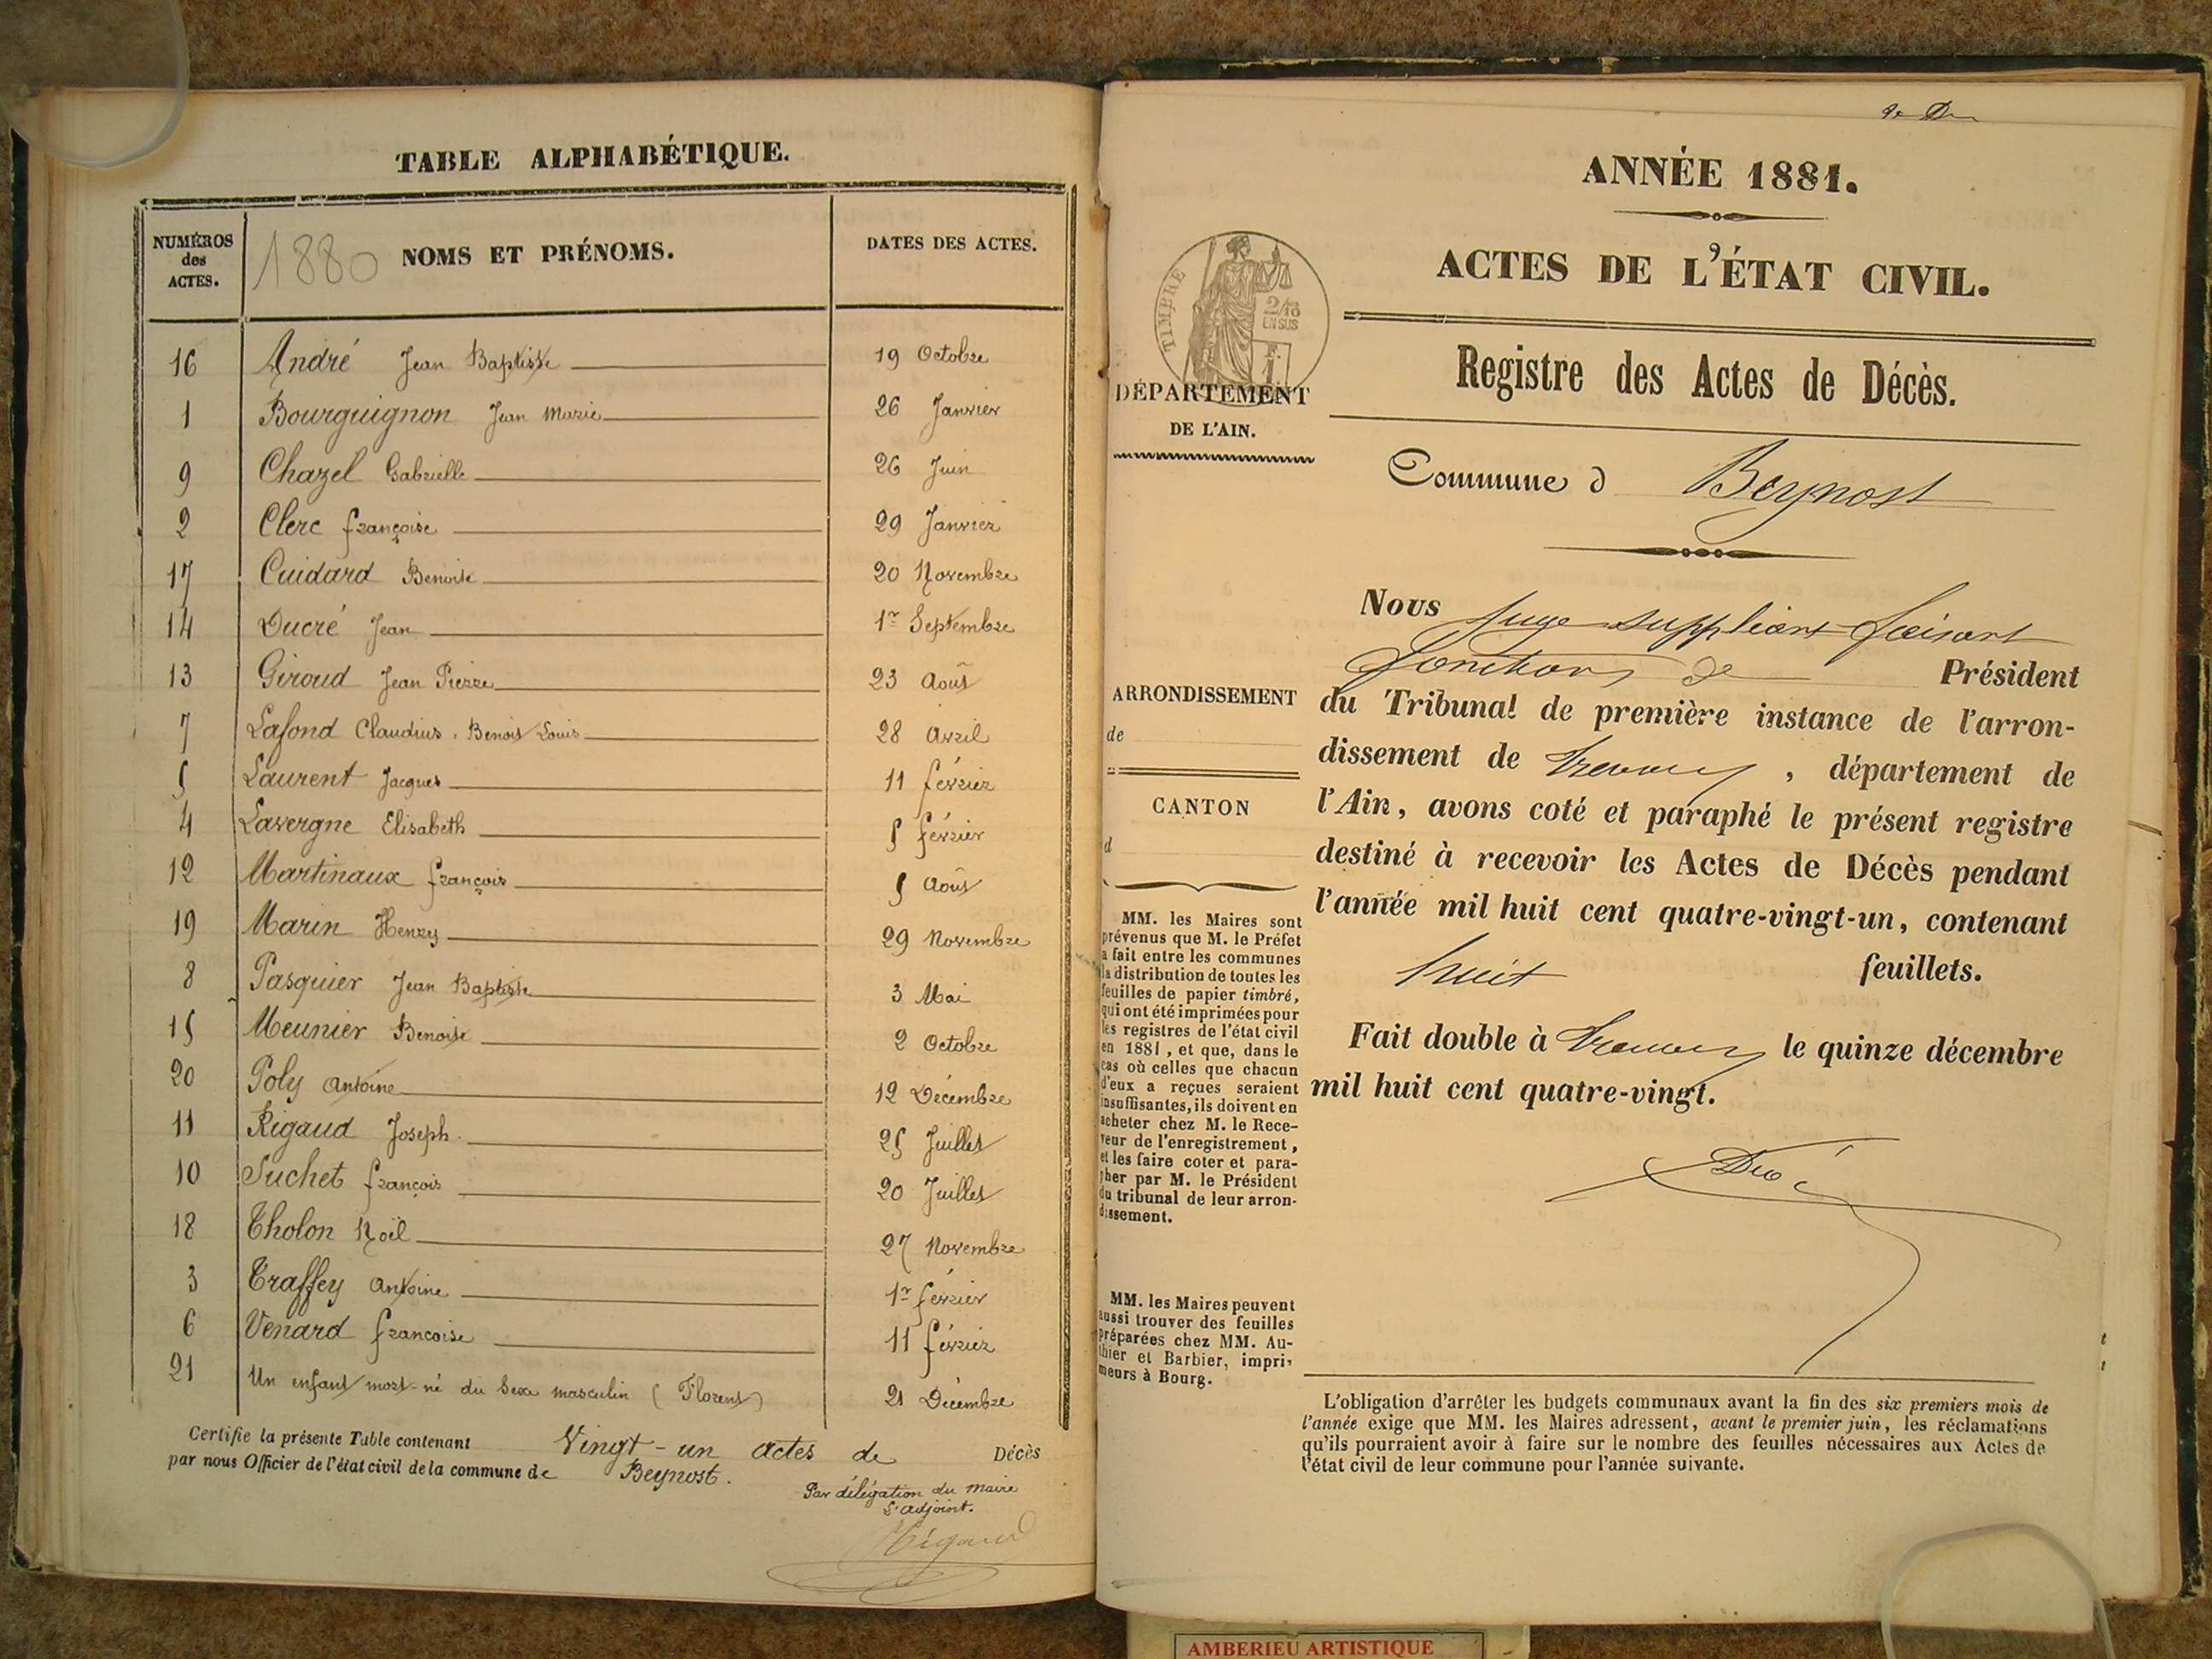 TABLE ALPHABÉTIQUE.
NUMÉROS des ACTES.
1880 NOMS ET PRÉNOMS.
DATES DES ACTES.
16 André Jean Baptiste 19 Octobre
1 Bourguignon Jean Marie 26 Janvier
9 Chazel Gabrielle 26 Juin
2 Clerc françoise 29 Janvier
17 Cuidard Benoite 20 Novembre
14 Ducré Jean 1er Septembre
13 Giroud Jean Pierre 23 Août
7 Lafond Claudius, Benoit Louis 28 Avril
5 Laurent Jacques 11 février
4 Lavergne Elisabeth 5 février
12 Martinaux françois 5 Août
19 Marin Henry 29 Novembre
8 Pasquier Jean Baptiste 3 Mai
15 Meunier Benoite 2 Octobre
20 Poly Antoine 12 Décembre
11 Rigaud Joseph 25 Juillet
10 Suchet françois 20 Juillet
18 Tholon Noël 27 Novembre
3 Traffey Antoine 1er février
6 Venard francoise 11 février
21 Un enfant mort-né du Sexe masculin (Florent) 21 Décembre
Certifie la présente Table contenant Vingt-un actes de Décès
par nous Officier de l'état civil de la commune de Beynost.
Par délégation du Maire
L'adjoint.
ANNÉE 1881.
ACTES DE L'ÉTAT CIVIL.
Registre des Actes de Décès.
TIMBRE
2/10
EN SUS
DÉPARTEMENT
DE L'AIN.
Commune d Beynost
ARRONDISSEMENT
de
CANTON
d
Nous Juge suppléant faisant
fonctions de Président
du Tribunal de première instance de l'arron-
dissement de Trévoux, département de
l'Ain, avons coté et paraphé le présent registre
destiné à recevoir les Actes de Décès pendant
l'année mil huit cent quatre-vingt-un, contenant
huit feuillets.
Fait double à Trévoux le quinze décembre
mil huit cent quatre-vingt.
MM. les Maires sont
prévenus que M. le Préfet
a fait entre les communes
la distribution de toutes les
feuilles de papier timbré,
qui ont été imprimées pour
les registres de l'état civil
en 1881, et que, dans le
cas où celles que chacun
d'eux a reçues seraient
insuffisantes, ils doivent en
acheter chez M. le Rece-
veur de l'enregistrement,
et les faire coter et para-
pher par M. le Président
du tribunal de leur arron-
dissement.
MM. les Maires peuvent
aussi trouver des feuilles
préparées chez MM. Au-
thier et Barbier, impri-
meurs à Bourg.
L'obligation d'arrêter les budgets communaux avant la fin des six premiers mois de
l'année exige que MM. les Maires adressent, avant le premier juin, les réclamations
qu'ils pourraient avoir à faire sur le nombre des feuilles nécessaires aux Actes de
l'état civil de leur commune pour l'année suivante.
AMBERIEU ARTISTIQUE